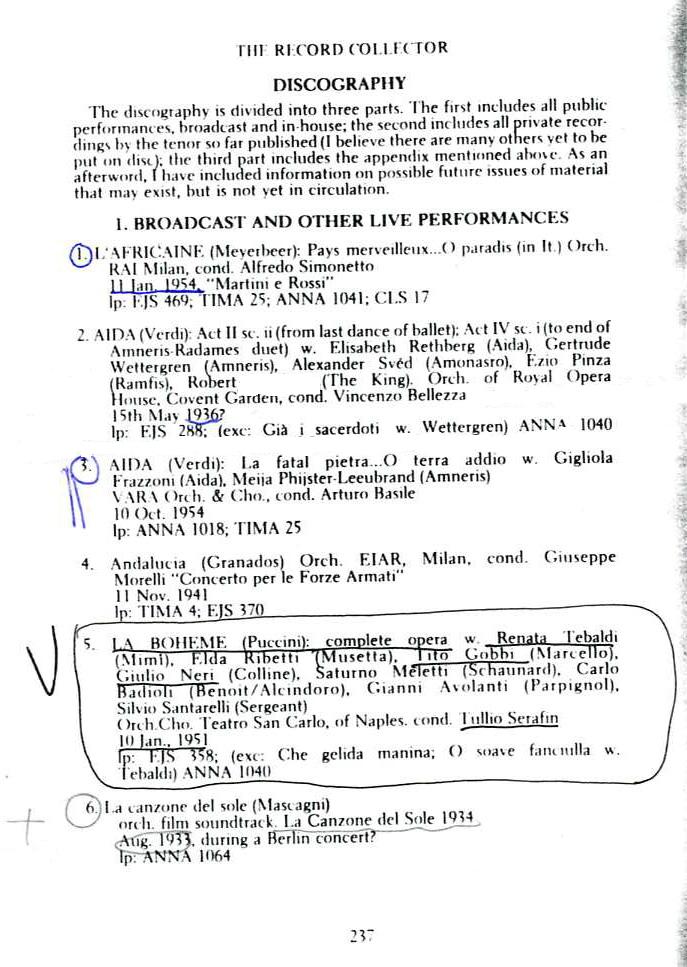 THE RECORD COLLECTOR
DISCOGRAPHY
The discography is divided into three parts. The first includes all public
performances, broadcast and in-house; the second includes all private recor-
dings by the tenor so far published (I believe there are many others yet to be
put on disc); the third part includes the appendix mentioned above. As an
afterword, I have included information on possible future issues of material
that may exist, but is not yet in circulation.
1. BROADCAST AND OTHER LIVE PERFORMANCES
1. L'AFRICAINE (Meyerbeer): Pays merveilleux...O paradis (in It.) Orch.
RAI Milan, cond. Alfredo Simonetto
11 Jan. 1954, "Martini e Rossi"
lp: EJS 469; TIMA 25; ANNA 1041; CLS 17
2. AIDA (Verdi): Act II sc. ii (from last dance of ballet); Act IV sc. i (to end of
Amneris-Radames duet) w. Elisabeth Rethberg (Aida), Gertrude
Wettergren (Amneris), Alexander Svéd (Amonasro), Ezio Pinza
(Ramfis), Robert (The King). Orch. of Royal Opera
House, Covent Garden, cond. Vincenzo Bellezza
15th May 1936?
lp: EJS 288; (exc: Già i sacerdoti w. Wettergren) ANNA 1040
3. AIDA (Verdi): La fatal pietra...O terra addio w. Gigliola
Frazzoni (Aida), Meija Phijster-Leeubrand (Amneris)
VARA Orch. & Cho., cond. Arturo Basile
10 Oct. 1954
lp: ANNA 1018; TIMA 25
4. Andalucia (Granados) Orch. EIAR, Milan, cond. Giuseppe
Morelli "Concerto per le Forze Armati"
11 Nov. 1941
lp: TIMA 4; EJS 370
5. LA BOHEME (Puccini): complete opera w. Renata Tebaldi
(Mimi), Elda Ribetti (Musetta), Tito Gobbi (Marcello),
Giulio Neri (Colline), Saturno Meletti (Schaunard), Carlo
Badioli (Benoit/Alcindoro), Gianni Avolanti (Parpignol),
Silvio Santarelli (Sergeant)
Orch.Cho. Teatro San Carlo, of Naples. cond. Tullio Serafin
10 Jan., 1951
lp: EJS 358; (exc: Che gelida manina; O soave fanciulla w.
Tebaldi) ANNA 1040
6. La canzone del sole (Mascagni)
orch. film soundtrack. La Canzone del Sole 1934
Aug. 1933, during a Berlin concert?
lp: ANNA 1064
237